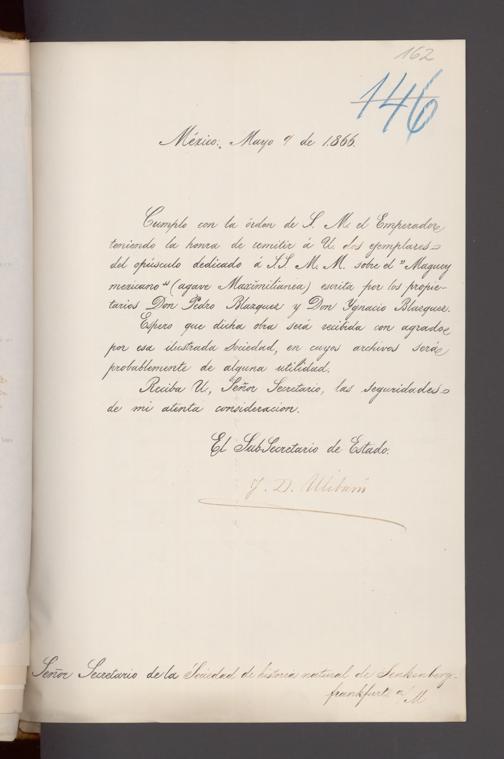 162
146
México, Mayo 9 de 1866.
Cumplo con la órden de S. M. el Emperador,
teniendo la honra de remitir á U. dos ejemplares
del opúsculo dedicado á S.S. M. M. sobre el "Maguey
mexicano" (agave Maximilianea) escrita por los propie-
tarios Don Pedro Blazquez y Don Ygnacio Blazquez.
Espero que dicha obra será recibida con agrado
por esa ilustrada Sociedad, en cuyos archivos será
probablemente de alguna utilidad.
Reciba U., Señor Secretario, las seguridades
de mi atenta consideracion.
El SubSecretario de Estado.
J. D. Ulibarri
Señor Secretario de la Sociedad de historia natural de Senkenberg-
frankfurt a/M